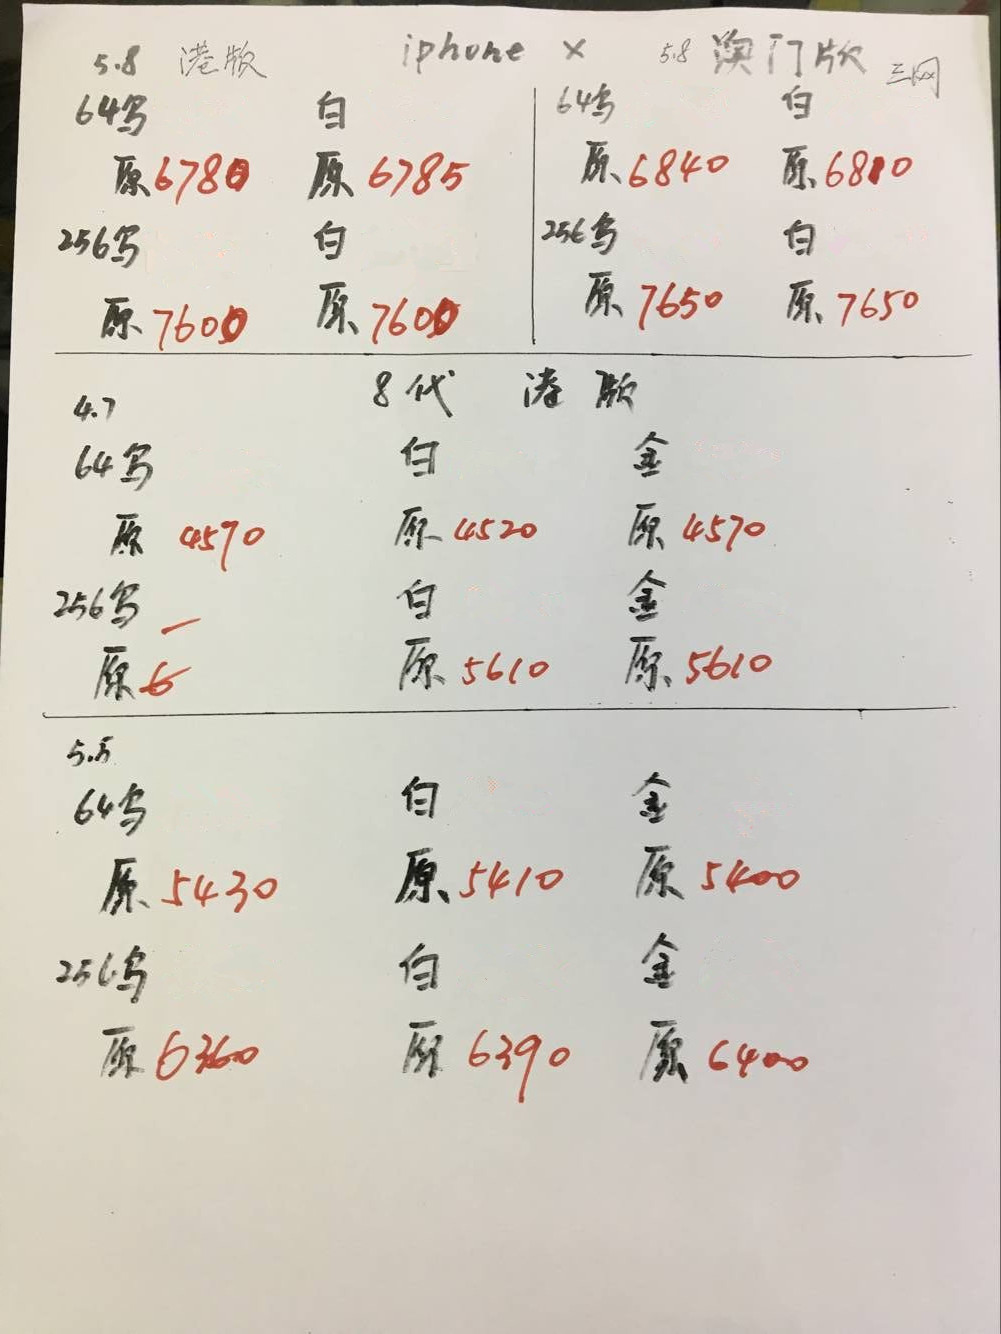 5.8 港版 iphone X 5.8 澳门版 三网
64乌 白 64乌 白
原6780 原6785 原6840 原6810
256乌 白 256乌 白
原7600 原7600 原7650 原7650
8代 港版
4.7
64乌 白 金
原 4570 原 4520 原 4570
256乌 白 金
原 原 5610 原 5610
5.5
64乌 白 金
原 5430 原 5410 原 5400
256乌 白 金
原 6360 原 6390 原 6400